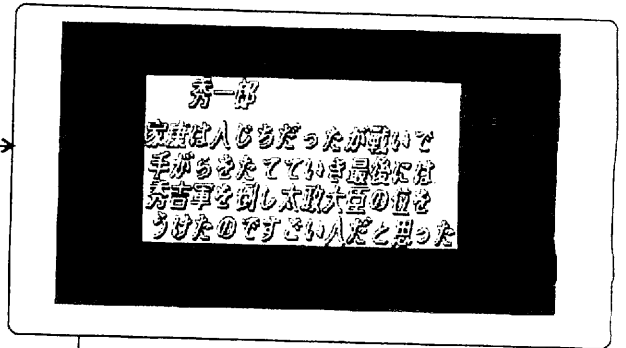 秀一郎
家康は人じちだったが戦いで
手がらをたてていき最後には
秀吉軍を倒し太政大臣の位を
うけたのですごい人だと思った